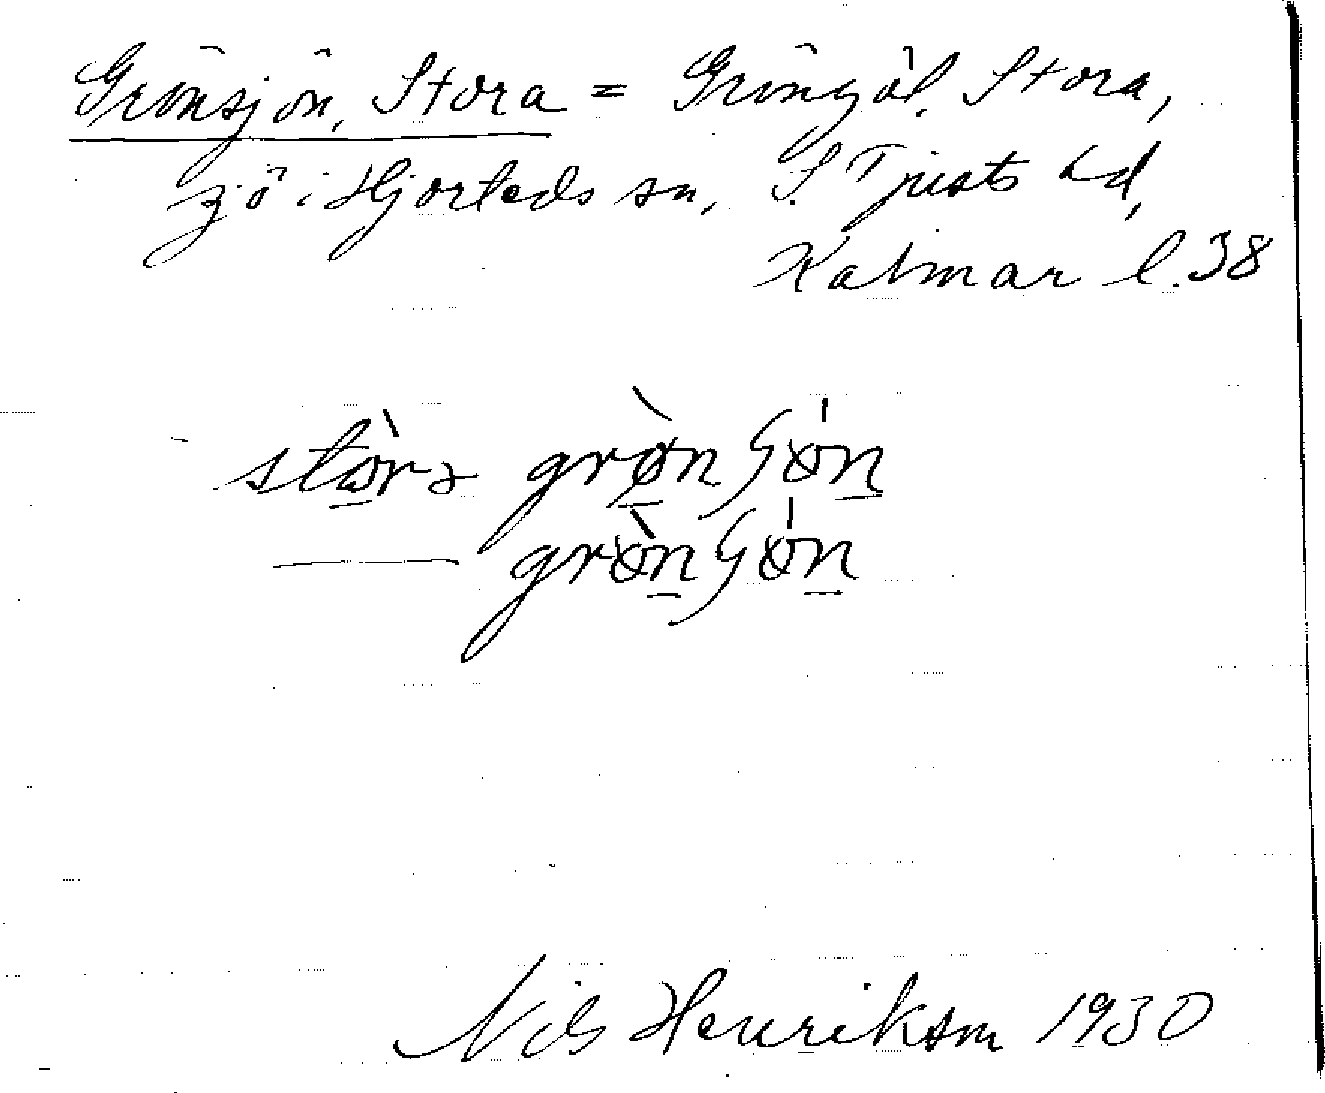 Grönsjön, Stora = Gröngöl, Stora,
sjö i Hjorteds sn, S. Tjusts hd,
Kalmar l. 38
stòra grø̀nʃøn
—— grø̀nʃøn
Nils Henrikson 1930